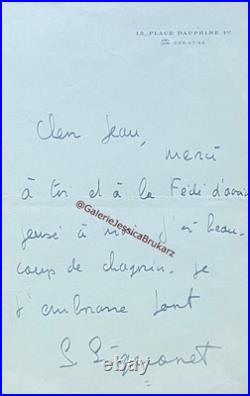 15, PLACE DAUPHINE. 1ᵉʳ
Cher Jean,
merci
à toi et à la Fédé d'avoir
pensé à moi j'ai beau-
coup de chagrin. je
t'embrasse fort
S. Signoret
@GalerieJessicaBrukarz
ebay.com